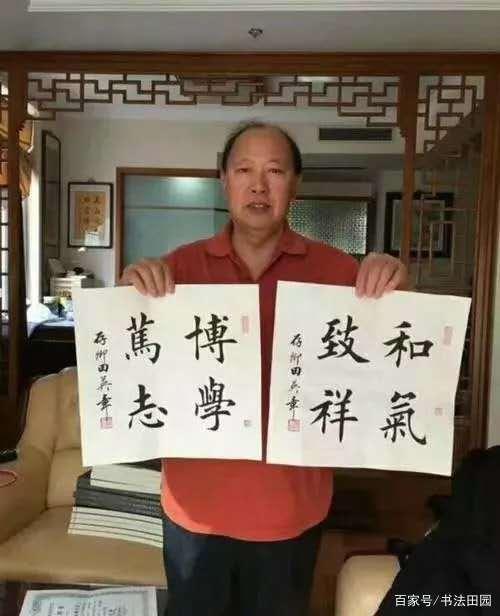 博學
篤志
存卿田英章
和氣
致祥
存卿田英章
百家号/书法田园